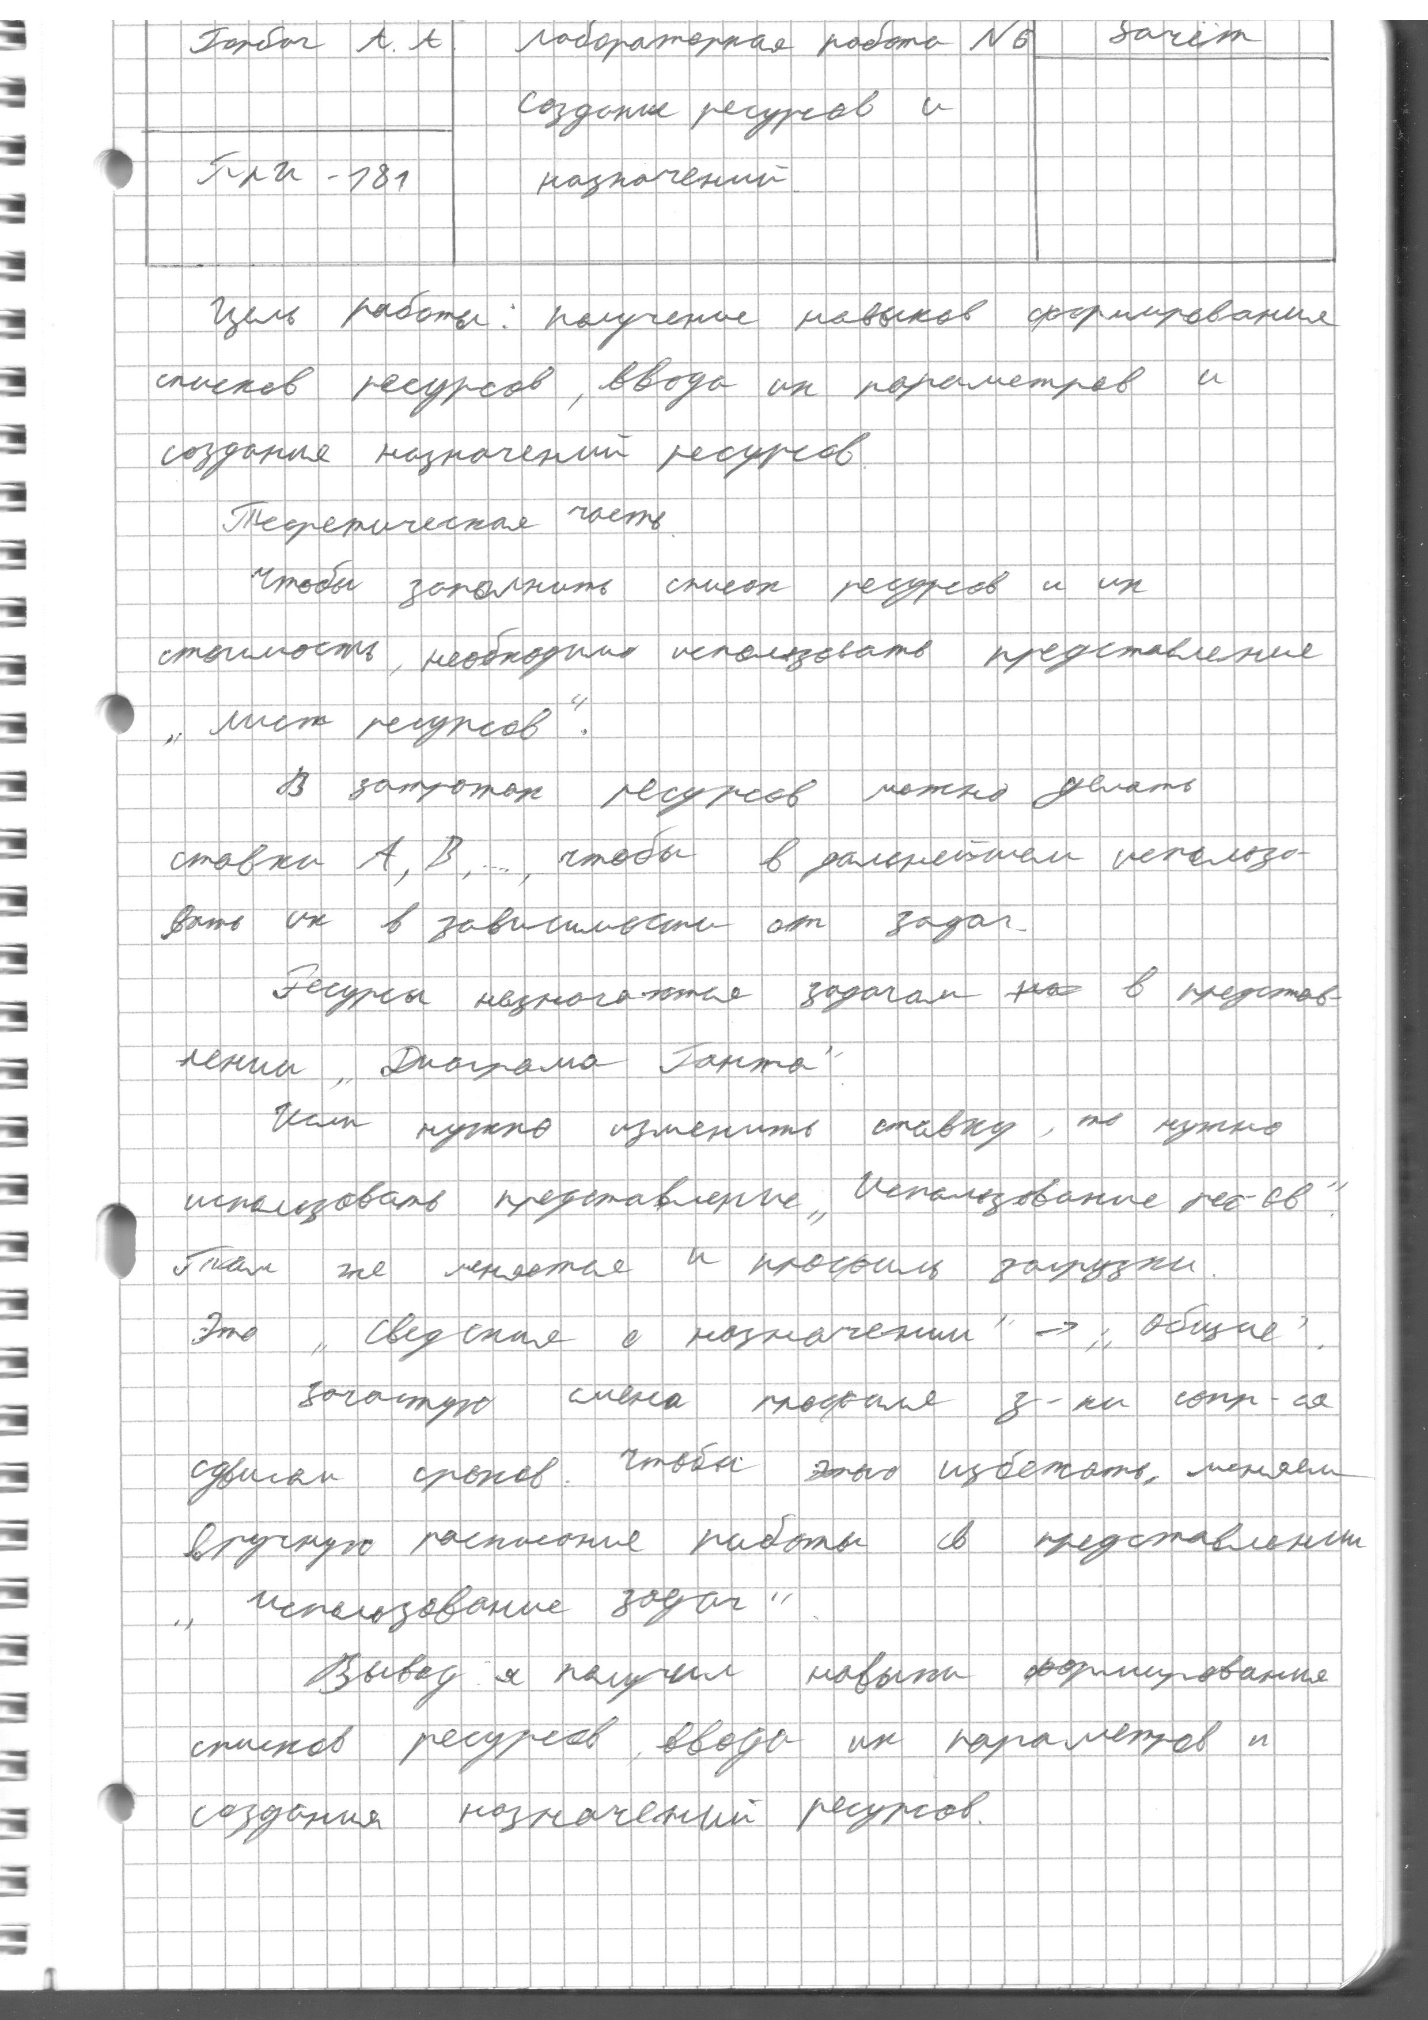 Горбач А. А. Лабораторная работа №6 Зачёт
Создание ресурсов и
ПрИ - 181 назначений.
Цель работы: получение навыков формирования
списков ресурсов, ввода их параметров и
создания назначений ресурсов.
Теоретическая часть.
Чтобы заполнить список ресурсов и их
стоимость, необходимо использовать представление
„Лист ресурсов“.
В затратах ресурсов можно делать
ставки А, В, ..., чтобы в дальнейшем использо-
вать их в зависимости от задач.
Ресурсы назначаются задачам на в представ-
лении „Диаграма Ганта“
Если нужно изменить ставку, то нужно
использовать представление „Использование рес-ов“.
Там же меняется и профиль загрузки.
Это „Сведения о назначении“ -> „Общие“.
Зачастую смена профиля з-ки сопр-ся
сдвигам сроков. Чтобы этого избежать, меняем
вручную расписание работы в представлении
„Использование задач“.
Вывод: я получил навыки формирования
списков ресурсов, ввода их параметров и
создания назначений ресурсов.